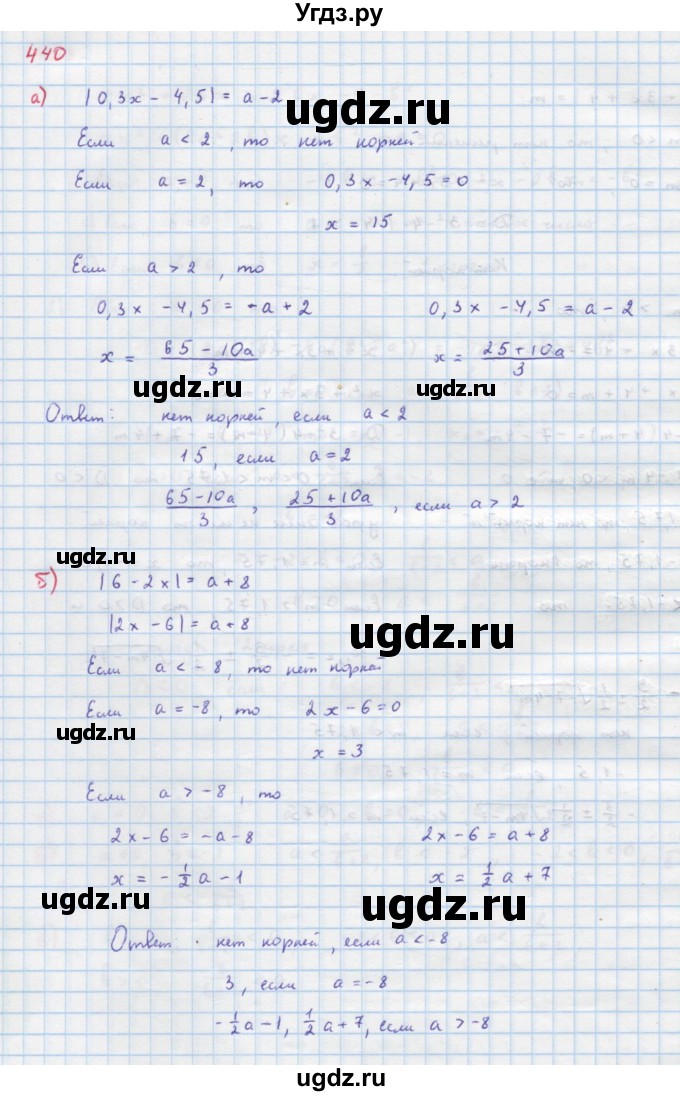 Угдз.ру
440
а) |0,3x - 4,5| = a - 2
ugdz.ru
Если a < 2, то нет корней
Если a = 2, то 0,3x - 4,5 = 0
x = 15
ugdz.ru
Если a > 2, то
0,3x - 4,5 = -a + 2 0,3x - 4,5 = a - 2
x = (65 - 10a)/3 x = (25 + 10a)/3
ugdz.ru
Ответ: нет корней, если a < 2
15, если a = 2
(65 - 10a)/3, (25 + 10a)/3, если a > 2
ugdz.ru ugdz.ru
б) |6 - 2x| = a + 8
|2x - 6| = a + 8
ugdz.ru
Если a < -8, то нет корней
Если a = -8, то 2x - 6 = 0
ugdz.ru
x = 3
Если a > -8, то
2x - 6 = -a - 8 2x - 6 = a + 8
x = -1/2 a - 1 x = 1/2 a + 7
ugdz.ru ugdz.ru
Ответ. нет корней, если a < -8
3, если a = -8
-1/2 a - 1, 1/2 a + 7, если a > -8
ugdz.ru
ugdz.ru